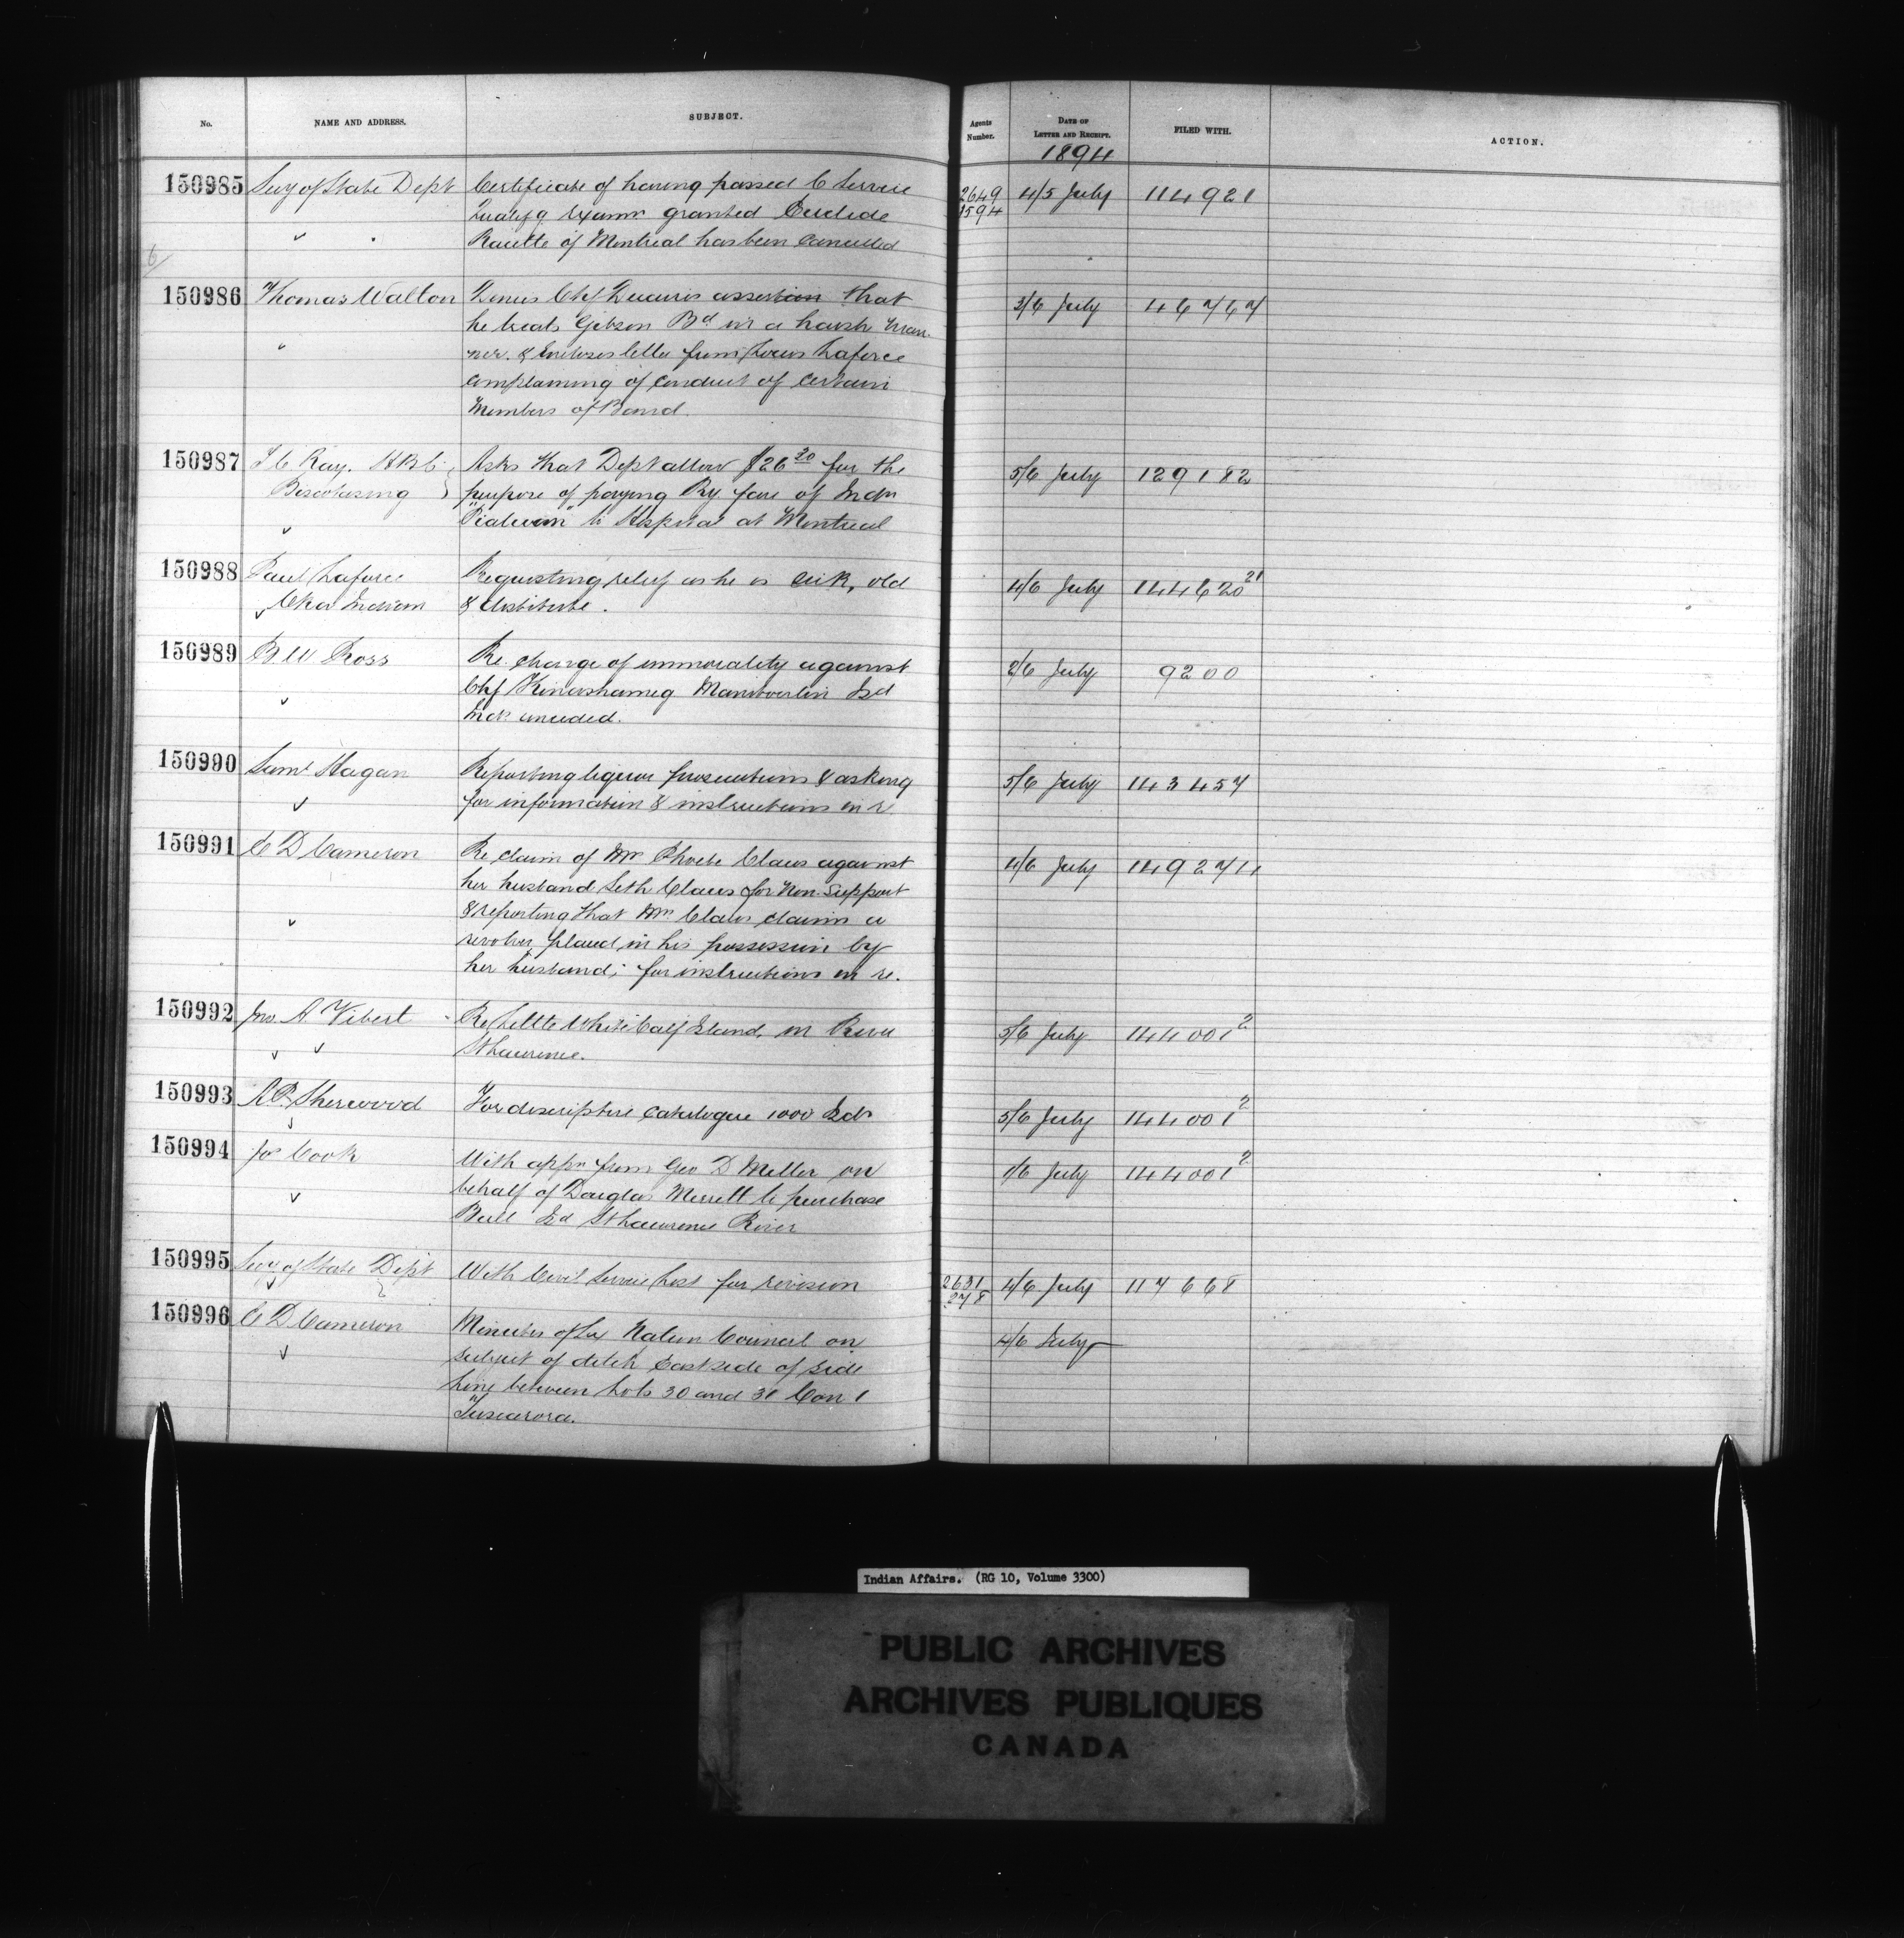 No. NAME AND ADDRESS. SUBJECT. Agents Number. DATE OF LETTER AND RECEIPT. FILED WITH. ACTION.
1894
150985 Secy of State Dept Certificate of having passed C Service 2649 4/5 July 114921
Qualifg Examn granted Euclide 1594
Racette of Montreal has been cancelled
6
150986 Thomas Walton Denies Chf assertion that 3/6 July 46767
he treats Gibson Bd in a harsh man-
ner. & Encloses letter from Louis Laforce
complaining of conduct of certain
Members of Band.
150987 J C Ray. H B C Asks that Dept allow $26 20 for the 5/6 July 129182
Biscotasing purpose of paying Ry fare of Indn
to Hospital at Montreal
150988 Paul Laforce Requesting relief as he is sick, old 4/6 July 144620 21
Oka Indian & destitute.
150989 B W Ross Re. charge of immorality against 2/6 July 9200
Chf Manitoulin Isd
unceded.
150990 Saml Hagan Reporting liquor prosecutions & asking 5/6 July 143457
for information & instructions in re
150991 E D Cameron Re claim of Mrs Phoebe Claus against 4/6 July 149274
her husband Seth Claus for Non-Support
& reporting that Mrs Claus claims a
revolver placed in his possession by
her husband; for instructions in re.
150992 Jno. A Vibert Re Little White Calf Island, in River 5/6 July 144001 2
St Lawrence.
150993 A P Sherwood For descriptive catalogue 1000 Isds 5/6 July 144001 2
150994 Jos Cook With appn from Geo D Miller on /6 July 144001 2
behalf of Douglas Merrett to purchase
Isd St Lawrence River
150995 Secy of State Dept With Civil Service List for revision 2631 4/6 July 117668
278
150996 E D Cameron Minutes of Six Nation Council on 4/6 July
subject of ditch East side of side
line between Lots 30 and 31 Con 1
Tuscarora.
Indian Affairs. (RG 10, Volume 3300)
PUBLIC ARCHIVES
ARCHIVES PUBLIQUES
CANADA